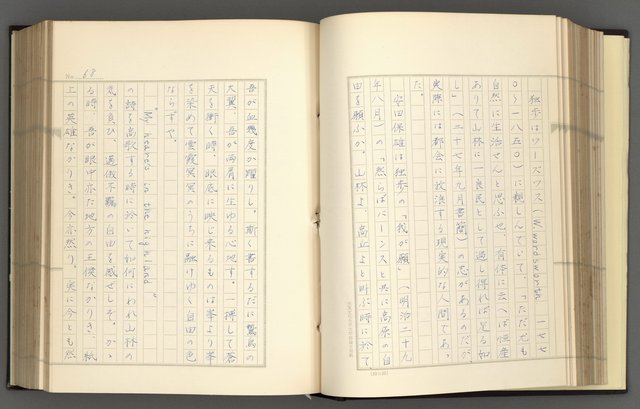 独歩はワーズワス(W. wardsworth 一七七
〇〜一八五〇)に親しんでいて、「ただ尤も
自然に生活せんと思ふせ、有体に云へば恒産
ありて山林に一良民として過し得れば足る如
し」(二十七年九月書簡)の志があるのだが、
実際には都会に放浪する現実的な人間であっ
た。
安田保雄は独歩の「我が願」(明治二十九
年八月)の「然らばバーンスと共に高原の自
由を願ふか。山林よ、高丘よと叫ぶ時に於て
No. 68
吾が血幾度か躍りし。斯く書するだに鷲鳥の
大翼、吾が両肩に生ゆる心地す。一搏して蒼
天を衝く時、眼底に映じ来るものは峯より峯
を染めて雲霞冥冥のうちに融けゆく自由の色
ならずや。
"My heare's in the highland"
の詩を高歌する時に於いて如何にわれ山林の
気を負ひ、過傲不羈の自由を感ぜしぞ。かゝ
る時、吾が眼中亦た地方の王侯なかりき、紙
上の英雄なかりき。今亦然り。実に今とも然
(20×10)